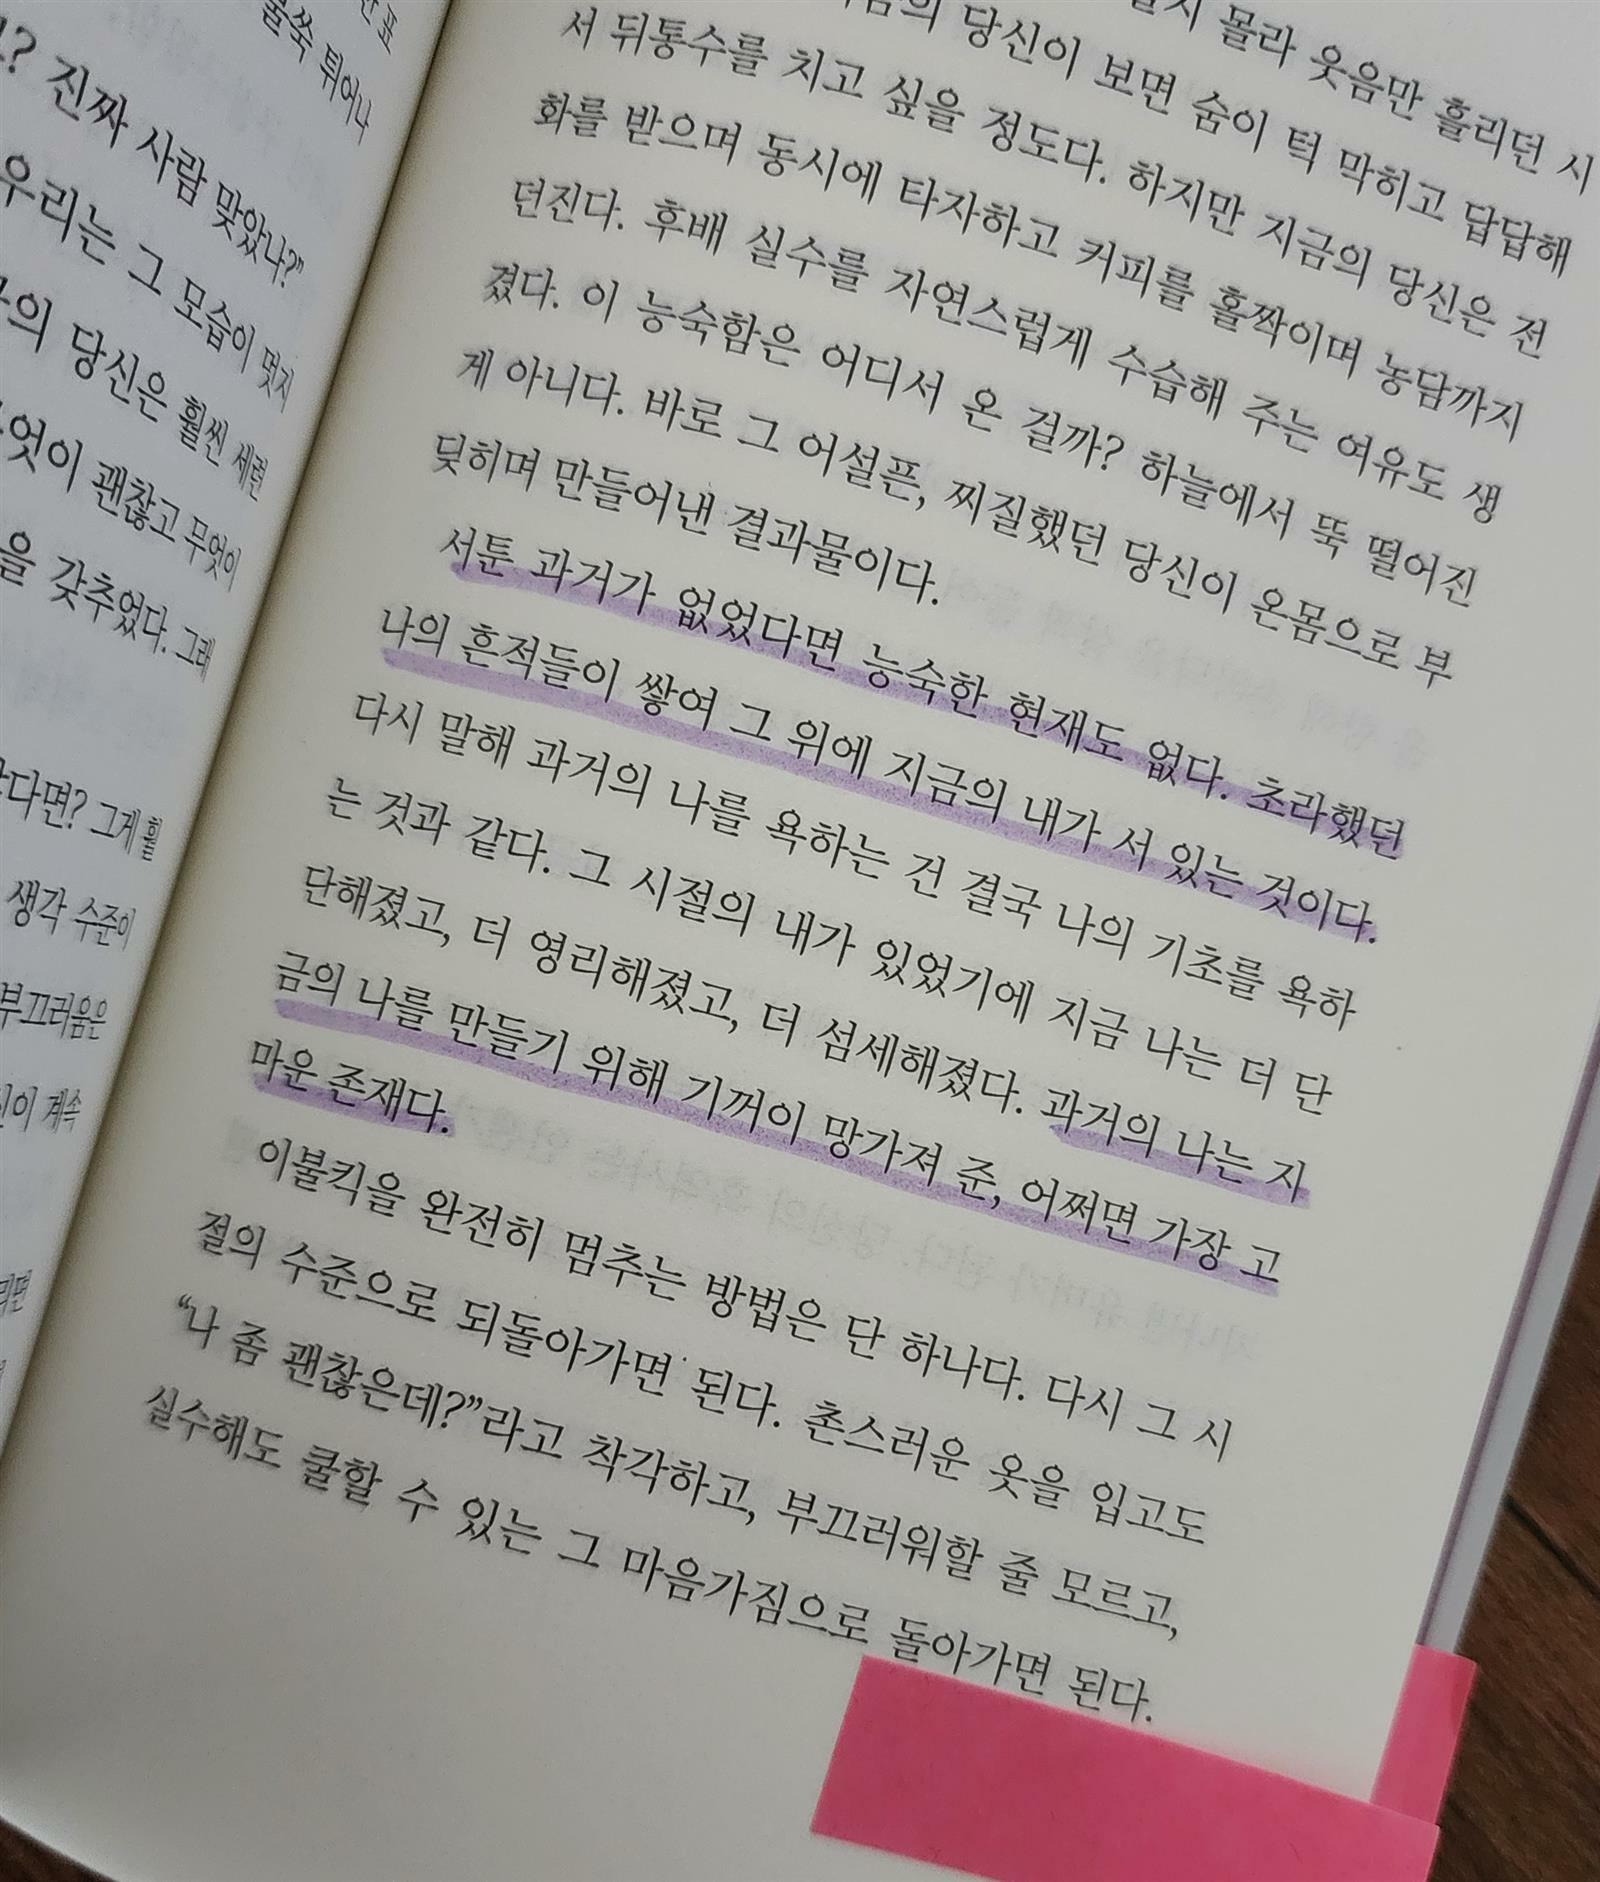 표
불쑥 튀어나
진짜 사람 맞았나?”
우리는 그 모습이 멋지
의 당신은 훨씬 세련
무엇이 괜찮고 무엇이
을 갖추었다. 그래
다면? 그게 훨
생각 수준이
부끄러움은
이 계속
몰라 웃음만 흘리던 시
의 당신이 보면 숨이 턱 막히고 답답해
서 뒤통수를 치고 싶을 정도다. 하지만 지금의 당신은 전
화를 받으며 동시에 타자하고 커피를 홀짝이며 농담까지
던진다. 후배 실수를 자연스럽게 수습해 주는 여유도 생
겼다. 이 능숙함은 어디서 온 걸까? 하늘에서 뚝 떨어진
게 아니다. 바로 그 어설픈, 찌질했던 당신이 온몸으로 부
딪히며 만들어낸 결과물이다.
서툰 과거가 없었다면 능숙한 현재도 없다. 초라했던
나의 흔적들이 쌓여 그 위에 지금의 내가 서 있는 것이다.
다시 말해 과거의 나를 욕하는 건 결국 나의 기초를 욕하
는 것과 같다. 그 시절의 내가 있었기에 지금 나는 더 단
단해졌고, 더 영리해졌고, 더 섬세해졌다. 과거의 나는 지
금의 나를 만들기 위해 기꺼이 망가져 준, 어쩌면 가장 고
마운 존재다.
이불킥을 완전히 멈추는 방법은 단 하나다. 다시 그 시
절의 수준으로 되돌아가면 된다. 촌스러운 옷을 입고도
“나 좀 괜찮은데?”라고 착각하고, 부끄러워할 줄 모르고,
실수해도 쿨할 수 있는 그 마음가짐으로 돌아가면 된다.